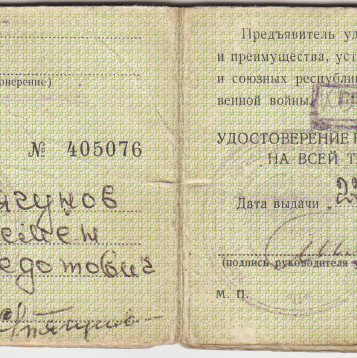 онерение)
№ 405076
ягунов
емен
едотович
Предъявитель уд
и преимущества, уст
и союзных республи
венной войны.
УДОСТОВЕРЕНИЕ
НА ВСЕЙ Т
Дата выдачи 22
(подпись руководителя
М. П.